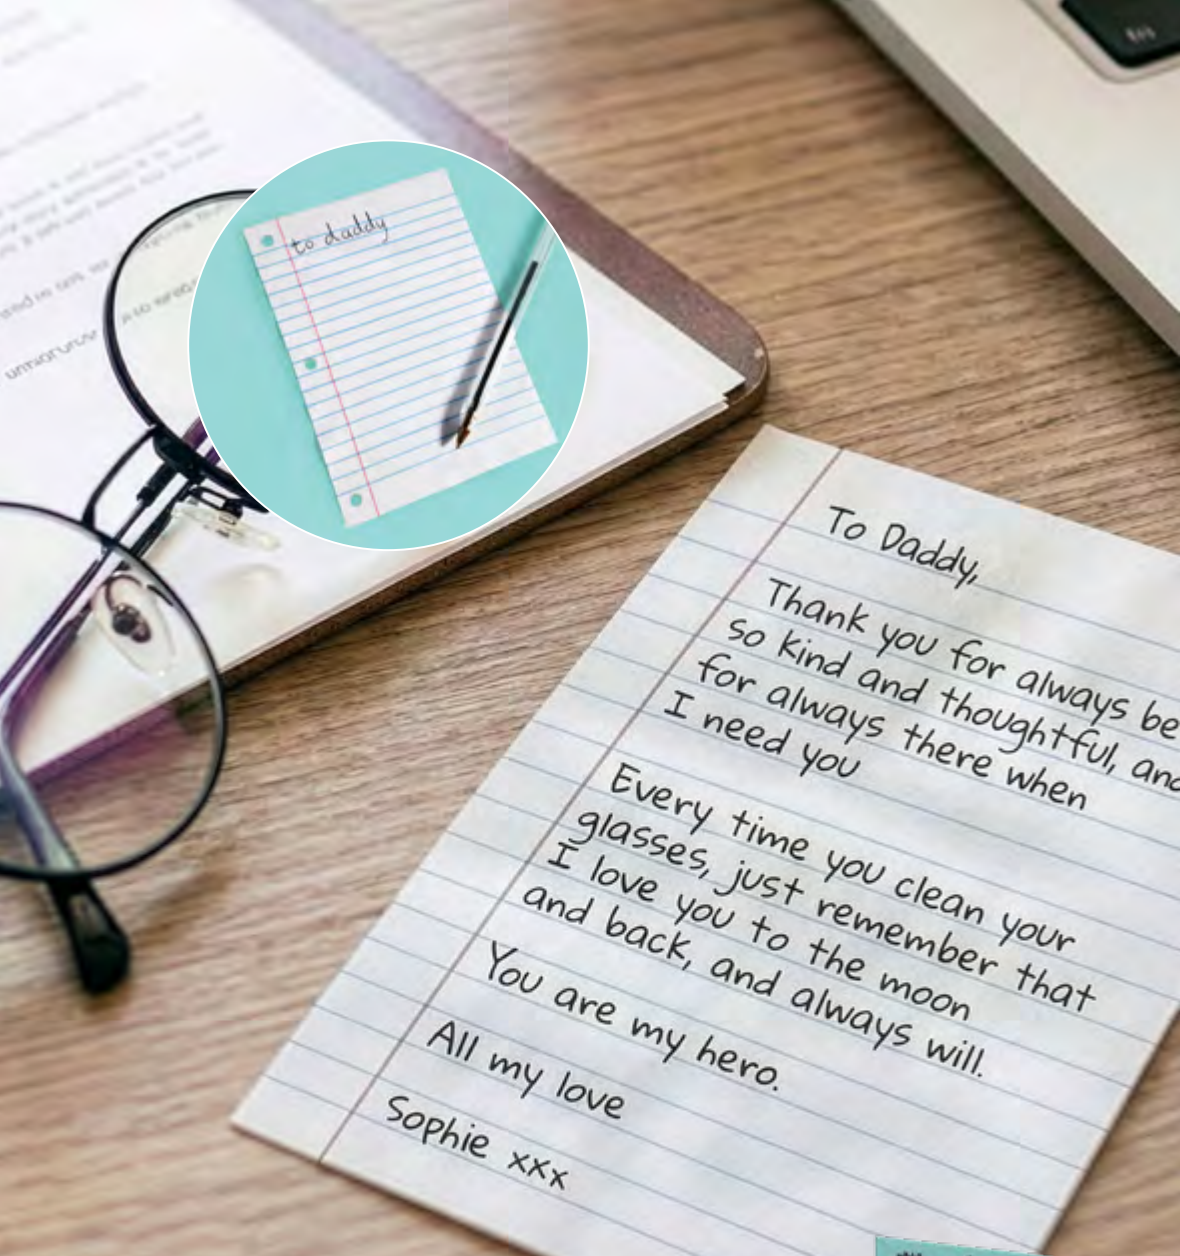 to daddy
To Daddy,
Thank you for always be
so kind and thoughtful, and
for always there when
I need you
Every time you clean your
glasses, just remember that
I love you to the moon
and back, and always will.
You are my hero.
All my love
Sophie xxx